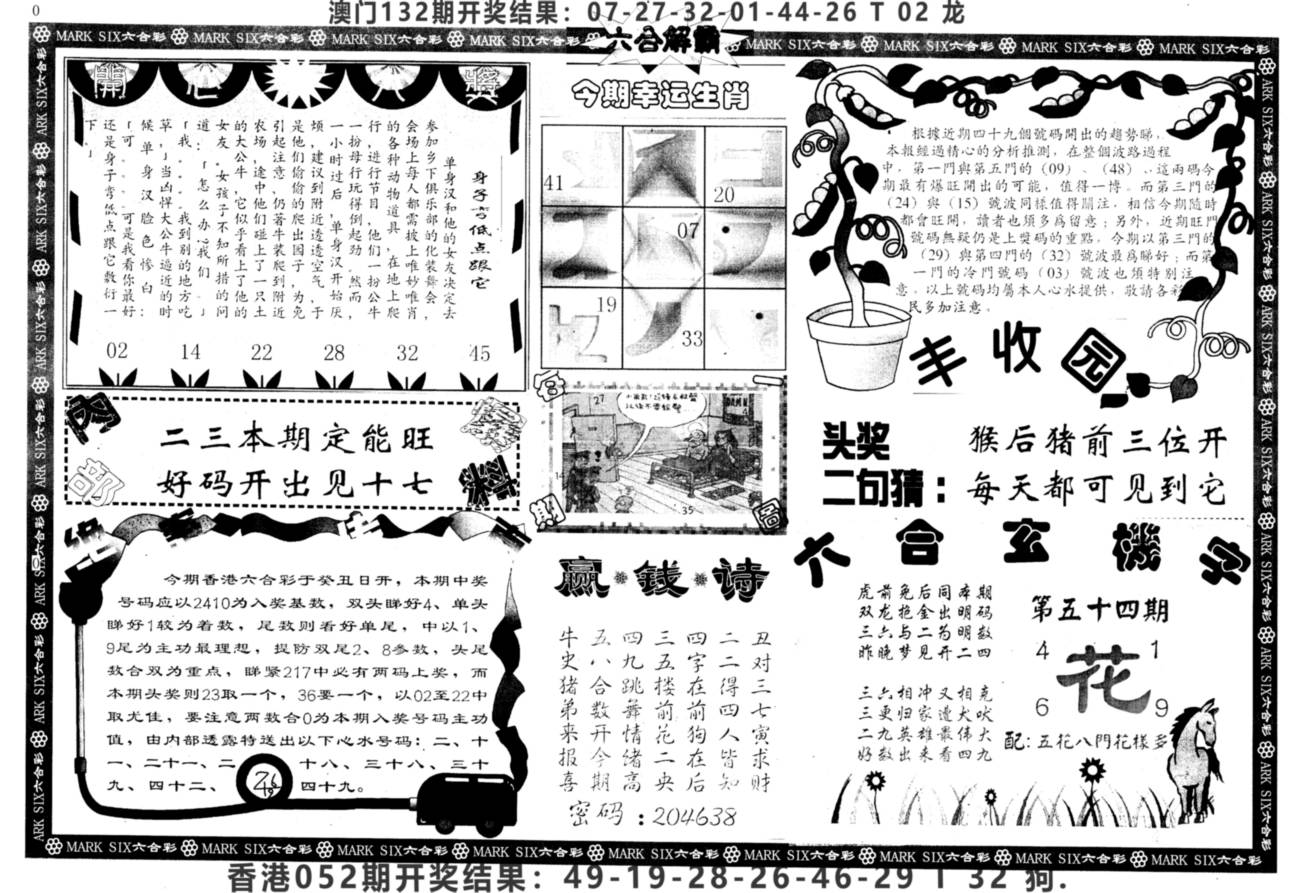 0
澳门132期开奖结果：07-27-32-01-44-26 T 02 龙
MARK SIX六合彩 MARK SIX六合彩 MARK SIX六合彩 MARK SIX六合彩
六合解霸
MARK SIX六合彩 MARK SIX六合彩 MARK SIX六合彩 MARK SIX六合彩
開心八獎
身子弯低点跟它
单身汉和他的女友决定去
参加乡下俱乐部的化装舞会，
会场上每人都需披上唯妙唯肖
的各种动物道具，在地上爬
行，进行节目，他们一扮公牛
一扮母行玩得倒起劲。然而，
一小时过后，单身汉开始厌
烦，建议到附近透透空气，于
是他们偷偷的爬出园子，为免
引起注意，仍著牛装爬到附近
农场，途中他们碰上了一只土
的大公牛，它似乎看上了他的
女友。女孩子不知所措的问
道：「怎么办？我们。」
「我。。我到别的地方吃
草，」当凶悍大公牛逼近的时
候单身汉脸色惨白：
「可。。可是我看你最好
还是身子弯低点跟它敷衍一
下。」
02 14 22 28 32 45
今期幸运生肖
41
20
07
19
33
根據近期四十九個號碼開出的趨勢睇，
本報經過精心的分析推測，在整個波路過程
中，第一門與第五門的（09）、（48）、這兩碼今
期最有爆旺開出的可能，值得一博。而第三門的
（24）與（15）號波同樣值得關注，相信今期隨時
都會旺開，讀者也須多為留意；另外，近期旺門
號碼無疑仍是上獎码的重點，今期以第三門的
（29）與第四門的（32）號波最爲睇好；而第
一門的冷門號碼（03）號波也須特別注
意。以上號码均屬本人心水提供，敬請各彩
民多加注意。
丰收园
内部资料
二三本期定能旺
好码开出见十七
27
35
头奖
二句猜：
猴后猪前三位开
每天都可见到它
今期香港六合彩于癸丑日开，本期中奖
号码应以2410为入奖基数，双头睇好4、单头
睇好1较为着数，尾数则看好单尾，中以1、
9尾为主功最理想，提防双尾2、8参数，头尾
数合双为重点，睇紧217中必有两码上奖，而
本期头奖则23取一个，36要一个，以02至22中
取尤佳，要注意两数合0为本期入奖号码主功
值，由内部透露特送出以下心水号码：二、十
一、二十一、二十八、三十八、三十
九、四十二、 四十九。
26
赢钱诗
丑对三七寅求财
二二得四人皆知
四字在前狗在后
三五楼前花二央
四九跳舞情绪高
五八合数开今期
牛史猪弟来报喜
密码：204638
六合玄機字
虎前兔后同本期
双龙抱金出明码
三六与二为明数
昨晚梦见开二四
三六相冲又相克
三更归家遭犬吠
二九英雄最伟大
好数出来看四九
第五十四期
4 1
花
6 9
配：五花八門花樣多
MARK SIX六合彩 MARK SIX六合彩 MARK SIX六合彩 MARK SIX六合彩 MARK SIX六合彩 MARK SIX六合彩 MARK SIX六合彩 MARK SIX六合彩 MARK SIX六合彩
香港052期开奖结果：49-19-28-26-46-29 T 32 狗.